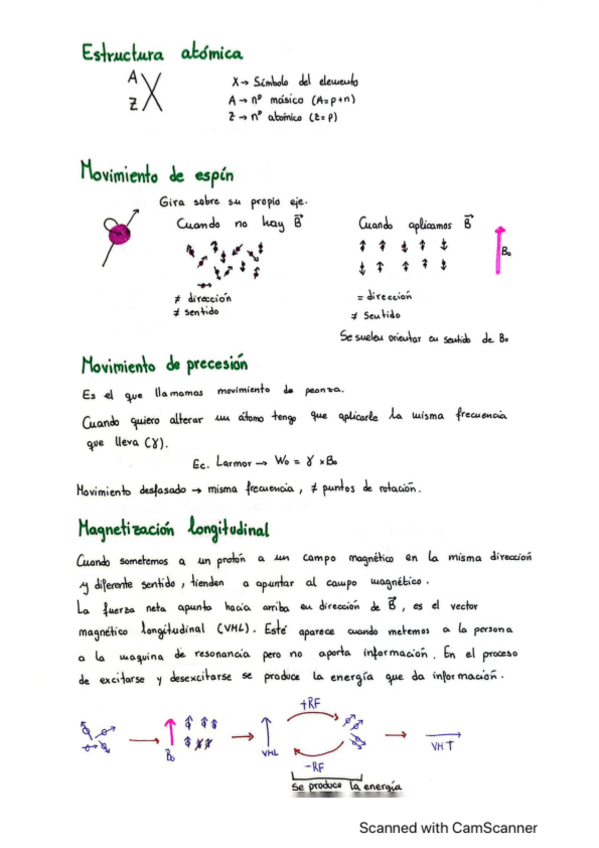 Estructura atómica
A
Z X
X → Símbolo del elemento
A → nº másico (A=p+n)
Z → nº atómico (Z=p)
Movimiento de espín
Gira sobre su propio eje.
Cuando no hay B⃗
Cuando aplicamos B⃗
B₀
≠ dirección
≠ sentido
= dirección
≠ sentido
Se suelen orientar en sentido de B₀
Movimiento de precesión
Es el que llamamos movimiento de peonza.
Cuando quiero alterar un átomo tengo que aplicarle la misma frecuencia
que lleva (γ).
Ec. Larmor → W₀ = γ × B₀
Movimiento desfasado → misma frecuencia, ≠ puntos de rotación.
Magnetización longitudinal
Cuando sometemos a un protón a un campo magnético en la misma dirección
y diferente sentido, tienden a apuntar al campo magnético.
La fuerza neta apunta hacia arriba en dirección de B⃗, es el vector
magnético longitudinal (VML). Esté aparece cuando metemos a la persona
a la maquina de resonancia pero no aporta información. En el proceso
de excitarse y desexcitarse se produce la energía que da información.
B₀
VML
+RF
-RF
VMT
Se produce la energía
Scanned with CamScanner